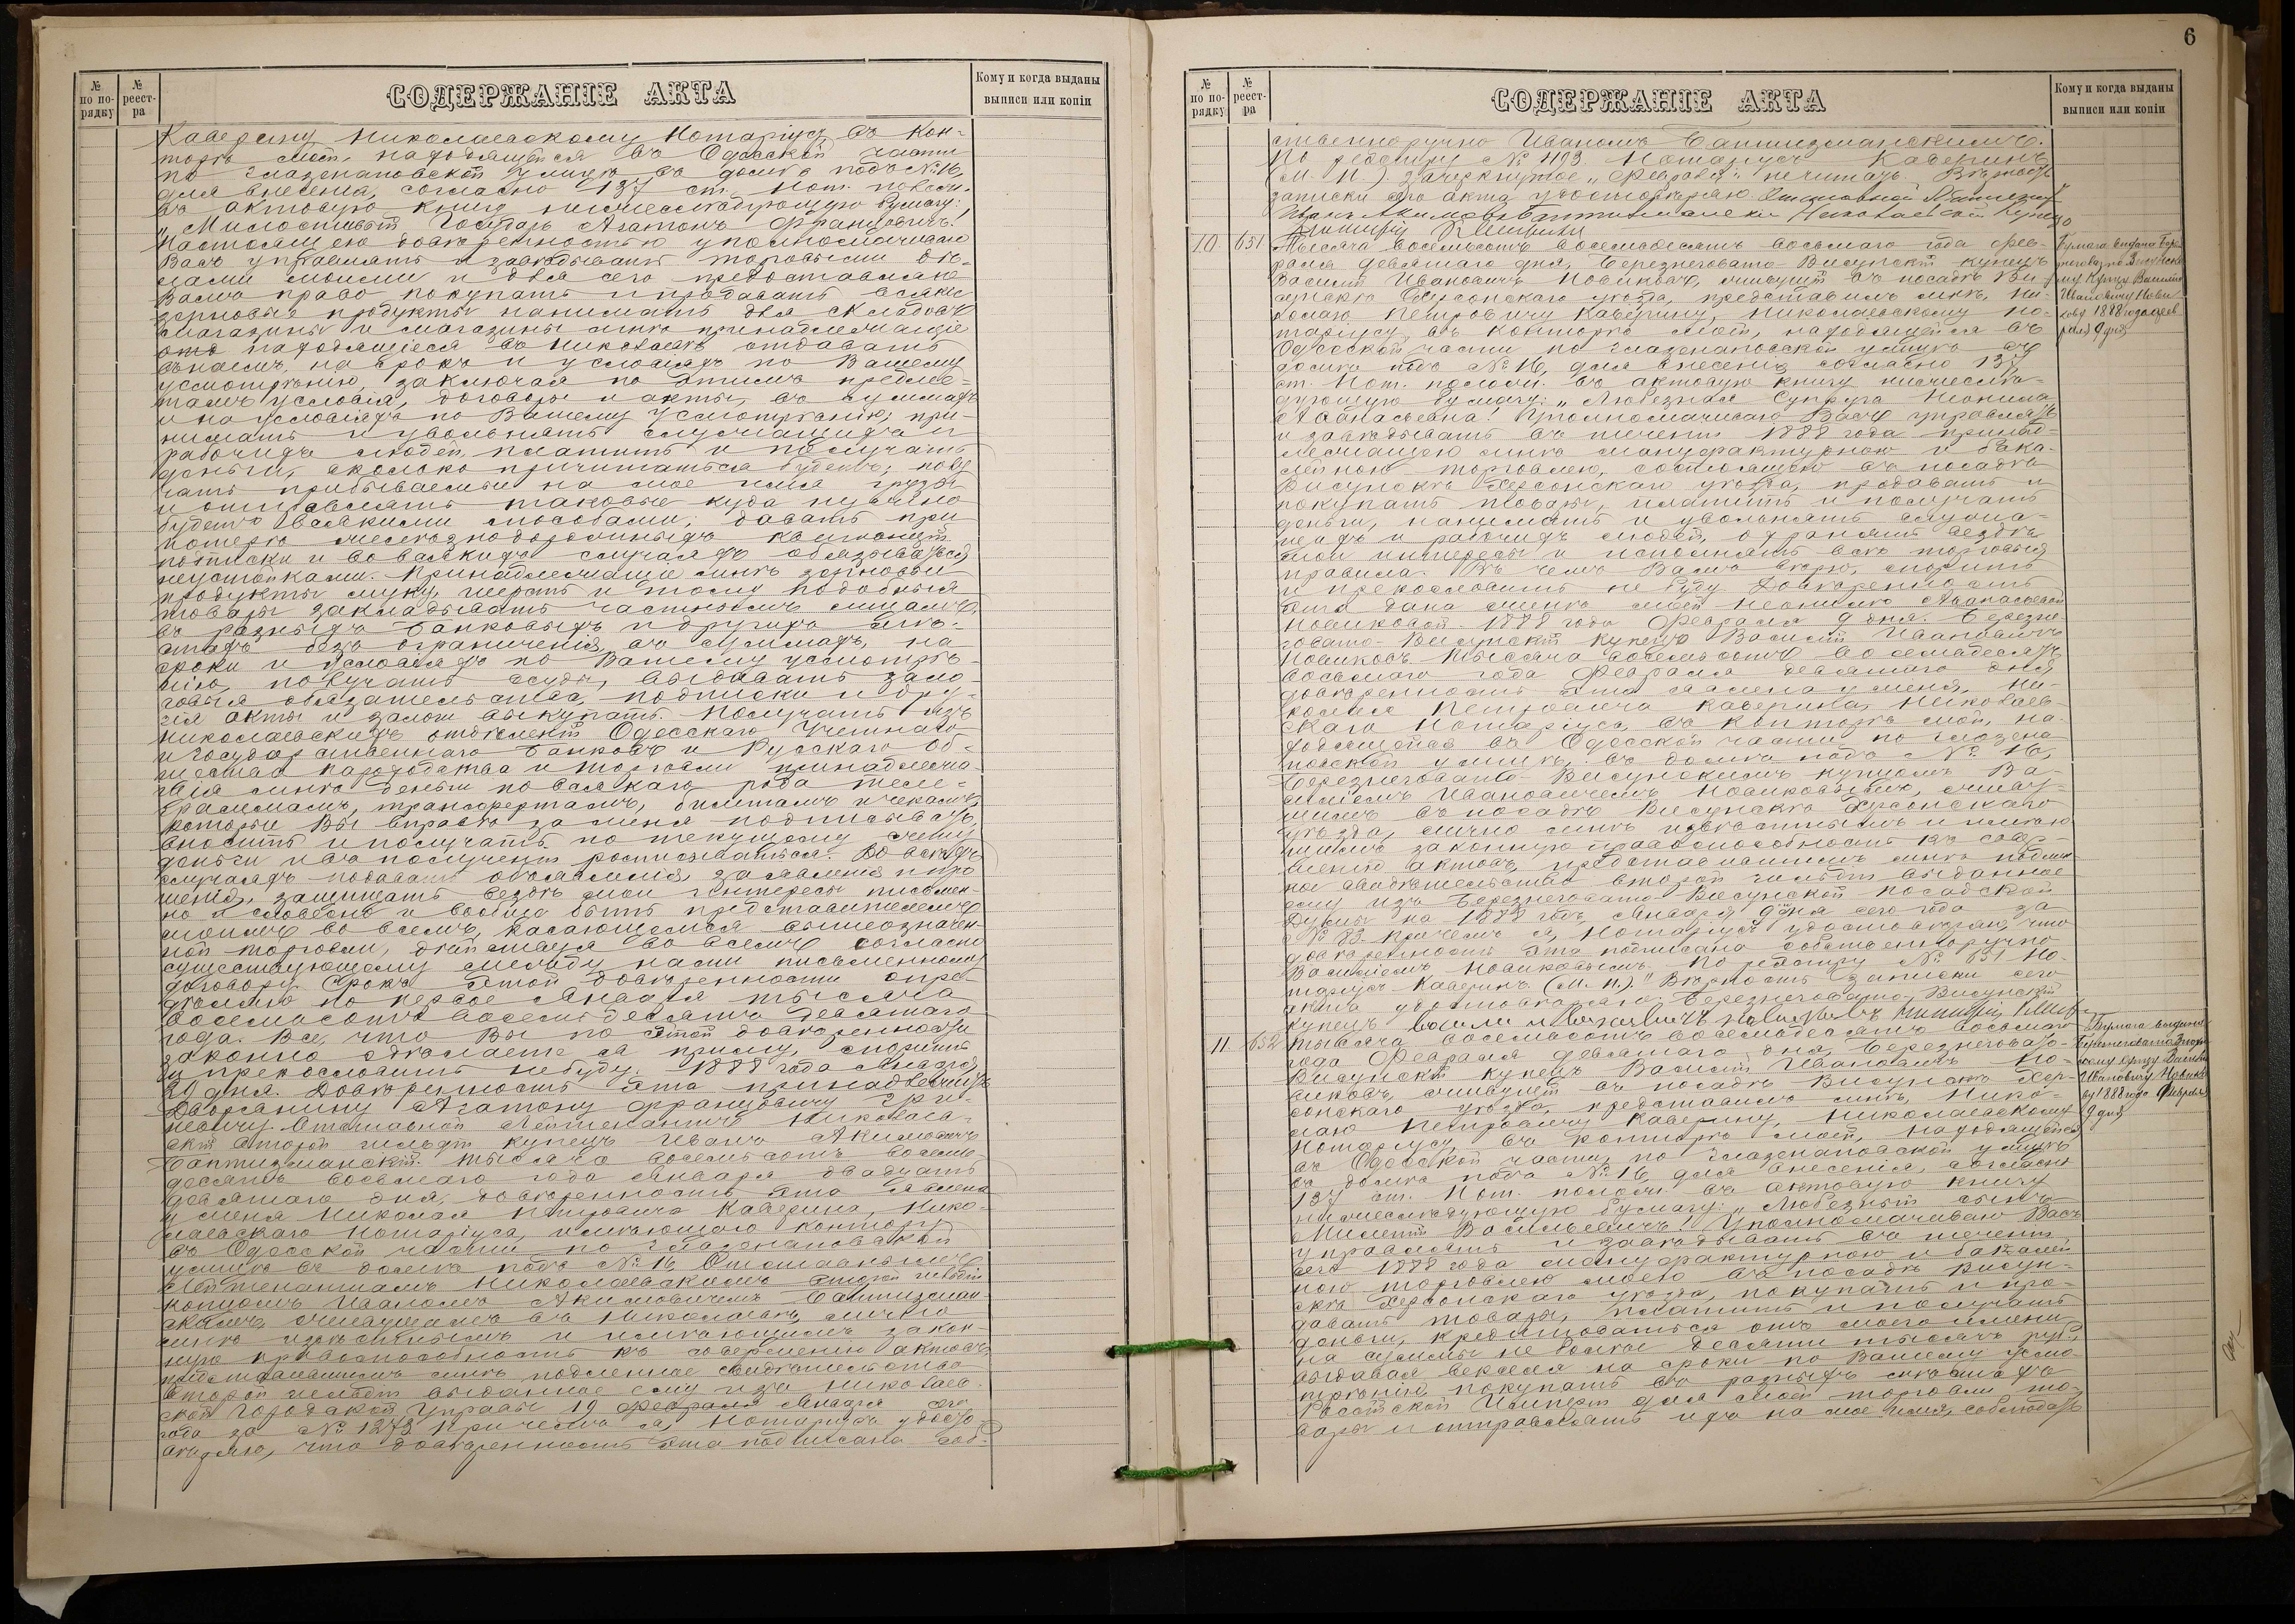 № по по-рядку
№ реест-ра
СОДЕРЖАНІЕ АКТА
Кому и когда выданы выписи или копіи
Каверину Николаевскому Нотаріусу, въ кон-
торѣ моей, находящейся въ Одесской части
по Глазенаповской улицѣ въ домѣ подъ № 16,
для внесенія, согласно 137 ст. Нот. полож.
въ актовую книгу нижеслѣдующую бумагу:
„Милостивый Государь Агатонъ Францовичъ!
Настоящею довѣренностью уполномачиваю
Васъ управлять и завѣдывать торговыми дѣ-
лами моими и для сего предоставляю
Вамъ право покупать и продавать всякіе
зерновые продукты нанимать для складовъ
магазины и магазины мнѣ принадлежащіе
находящіеся въ Николаевѣ отдавать
въ наемъ, на срокъ и условіяхъ по Вашему
усмотрѣнію, заключая по этимъ предме-
тамъ условія, договоры и акты, въ суммахъ
и на условіяхъ по Вашему усмотрѣнію; при-
нимать и увольнять служащихъ и
рабочихъ людей, платить и получать
деньги, сколько причитаться будетъ; полу
чать прибываемые на мое имя грузы
и отправлять таковые куда нужно
будетъ всякими способами; давать при
потерѣ желѣзнодорожныхъ квитанцій
подписки и во всякихъ случаяхъ обязываться
неустойками. Принадлежащіе мнѣ зерновые
продукты муку, шерсть и тому подобныя
товары закладывать частнымъ лицамъ,
въ разныхъ банковыхъ и другихъ мѣ-
стахъ безъ ограниченія въ суммахъ, на
сроки и условіяхъ по Вашему усмотрѣ-
нію, получать ссуды, выдавать зало-
говыя обязательства, подписки и дру-
гія акты и залоги выкупать. Получать изъ
Николаевскихъ отдѣленій Одесскаго Учетнаго
и Государственнаго Банковъ и Русскаго Об-
щества пароходства и торговли принадлежа-
щія мнѣ деньги по всякаго рода теле-
граммамъ, трансфертамъ, билетамъ и чекамъ,
которые Вы вправѣ за меня подписывать,
вносить и получать по текущему счету
деньги и въ полученіи росписываться. Во всѣхъ
случаяхъ подавать объявленія, заявленія и про
шенія, защищать вездѣ мои интересы письмен-
но и словесно и вообще быть представителемъ
моимъ во всемъ, касающемся вышеозначен-
ной торговли, дѣйствуя во всемъ согласно
существующему между нами письменному
договору. Срокъ этой довѣренности опре-
дѣляю по первое Января тысяча
восемьсотъ восемьдесятъ девятаго
года. Все, что Вы по этой довѣренности
законно сдѣлаете я приму, спорить
и прекословить небуду. 1888 года Января
29 дня. Довѣренность эта принадлежитъ
Дворянину Агатону Францовичу
Отставной Лейтенантъ Николаев-
скій второй гильдіи купецъ Иванъ Акимовичъ
Баптизманскій. Тысяча восемьсотъ восемь-
десятъ восьмаго года Января двадцать
девятаго дня, довѣренность эта явлена
у меня Николая Петровича Каверина, Нико-
лаевскаго Нотаріуса, имѣющаго контору
въ Одесской части по Глазенаповской
улицѣ въ домѣ подъ № 16 Отставнымъ
Лейтенантомъ Николаевскимъ второй гильдіи
купцомъ Иваномъ Акимовичемъ Баптизман-
скимъ, живущимъ въ Николаевѣ, лично
мнѣ извѣстнымъ и имѣющимъ закон-
ную правоспособность къ совершенію актовъ,
представившимъ мнѣ подленное свидѣтельство
второй гильдіи выданное ему изъ Николаев-
ской Городской Управы 19 Февраля Января сего
года за № 1273 Причемъ я, Нотаріусъ удосто
вѣряю, что довѣренность эта подписана соб-
6
№ по по-рядку
№ реест-ра
СОДЕРЖАНІЕ АКТА
Кому и когда выданы выписи или копіи
ственноручно Иваномъ Баптизманскимъ.
По реестру № 493 Нотаріусъ Каверинъ
(М. П.). Зачеркнутое „Февраля" нечитать. Вѣрность
записки сего акта удостовѣряю. Отставной Лейтенантъ
Иванъ Акимовъ Баптизманскій Николаевскій купецъ
10. 651 Тысяча восемьсотъ восемьдесятъ восьмаго года Фев-
раля девятаго дня, Березнеговато-Висунскій купецъ
Василій Ивановичъ Новиковъ, живущій въ посадѣ Ви-
сунскѣ Херсонскаго уѣзда, представилъ мнѣ, Ни-
колаю Петровичу Каверину, Николаевскому Но-
таріусу, въ конторѣ моей, находящейся въ
Одесской части по Глазенаповской улицѣ въ
домѣ подъ № 16, для внесенія согласно 137
ст. Нот. полож. въ актовую книгу нижеслѣ-
дующую бумагу: „Любезная Супруга Неонила
Афанасьевна! Уполномачиваю Васъ управлять
и завѣдывать въ теченіи 1888 года принад-
лежащею мнѣ мануфактурною и бака-
лейною торговлею, состоящею въ посадѣ
Висунскѣ Херсонскаго уѣзда, продавать и
покупать товары, платить и получать
деньги, нанимать и увольнять служа-
щихъ и рабочихъ людей, охранять вездѣ
мои интересы и исполнять всѣ торговыя
правила. Въ чемъ Вамъ вѣрю, спорить
и прекословить не буду. Довѣренность
эта дана женѣ моей Неонилѣ Афанасьевой
Новиковой. 1888 года Февраля 9 дня. Березне-
говато-Висунскій купецъ Василій Ивановичъ
Новиковъ. Тысяча восемьсотъ восемьдесятъ
восьмаго года Февраля девятаго дня
довѣренность эта явлена у меня, Ни-
колая Петровича Каверина, Николаев-
скаго Нотаріуса, въ конторѣ моей, на-
ходящейся въ Одесской части по Глазена-
повской улицѣ, въ домѣ подъ № 16,
Березнеговато-Висунскимъ купцомъ Ва-
силіемъ Ивановичемъ Новиковымъ, живу-
щимъ въ посадѣ Висунскѣ Херсонскаго
уѣзда, лично мнѣ извѣстнымъ и имѣю
щимъ законную правоспособность къ совер-
шенію актовъ, представившимъ мнѣ подлин-
ное свидѣтельство второй гильдіи выданное
ему изъ Березнеговато-Висунской посадской
Думы на 1888 годъ Января 9 дня сего года за
№ 83. Причемъ я, Нотаріусъ удостовѣряю, что
довѣренность эта подписана собственноручно
Василіемъ Новиковымъ. По реестру № 651 Но-
таріусъ Каверинъ (М. П.)." Вѣрность записки сего
акта удостовѣряю: Березнеговато-Висунскій
купецъ
Бумага выдана Бере-
неговато-Висунско
му купцу Василію
Ивановичу Нови-
кову 1888 года Фев-
раля 9 дня
11. 652 Тысяча восемьсотъ восемьдесятъ восьмаго
года Февраля девятаго дня, Березнеговато-
Висунскій купецъ Василій Ивановичъ Но-
виковъ, живущій въ посадѣ Висунскѣ Хер-
сонскаго уѣзда, представилъ мнѣ, Нико-
лаю Петровичу Каверину, Николаевскому
Нотаріусу, въ конторѣ моей, находящейся
въ Одесской части, по Глазенаповской улицѣ
въ домѣ подъ № 16, для внесенія, согласно
137 ст. Нот. полож. въ актовую книгу
нижеслѣдующую бумагу: „Любезный сынъ
Милетій Васильевичъ! Уполномачиваю Васъ
управлять и завѣдывать въ теченіи
сего 1888 года мануфактурною и бакалей
ною торговлею моею въ посадѣ Висун-
скѣ Херсонскаго уѣзда, покупать и про-
давать товары, платить и получать
деньги, кредитоваться отъ моего имени
на суммы не болѣе десяти тысячъ руб.,
выдавая векселя на сроки по Вашему усмо-
трѣнію, покупать въ разныхъ мѣстахъ
Россійской Имперіи для моей торговли то-
вары и отправлять ихъ на мое имя, соблюдать
Бумага выдана
Березнеговато-Висун-
скому купцу Василію
Ивановичу Новико
ву 1888 года Февраля
9 дня